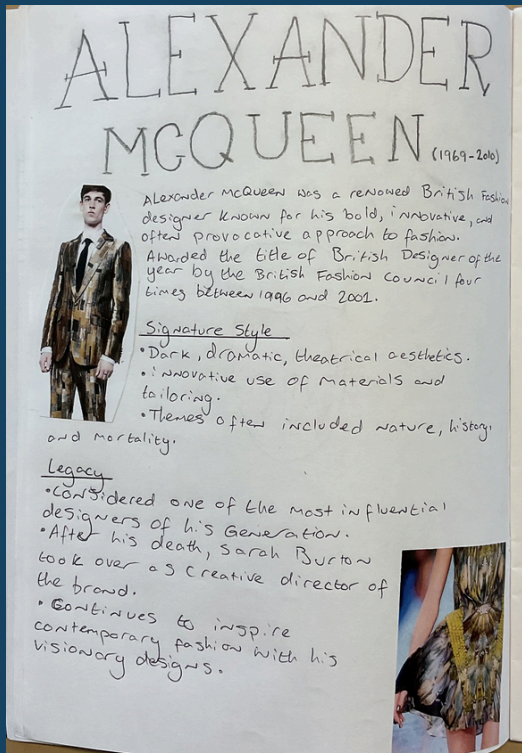 ALEXANDER
MCQUEEN (1969-2010)
Alexander McQueen was a renowed British Fashion
designer known for his bold, innovative, and
often provocative approach to fashion.
Awarded the title of British Designer of the
year by the British Fashion Council four
times between 1996 and 2001.
Signature Style
• Dark, dramatic, theatrical aesthetics.
• innovative use of materials and
tailoring.
• Themes often included nature, history,
and mortality.
Legacy
• Considered one of the most influential
designers of his Generation.
• After his death, Sarah Burton
took over as creative director of
the brand.
• Continues to inspire
contemporary fashion with his
visionary designs.